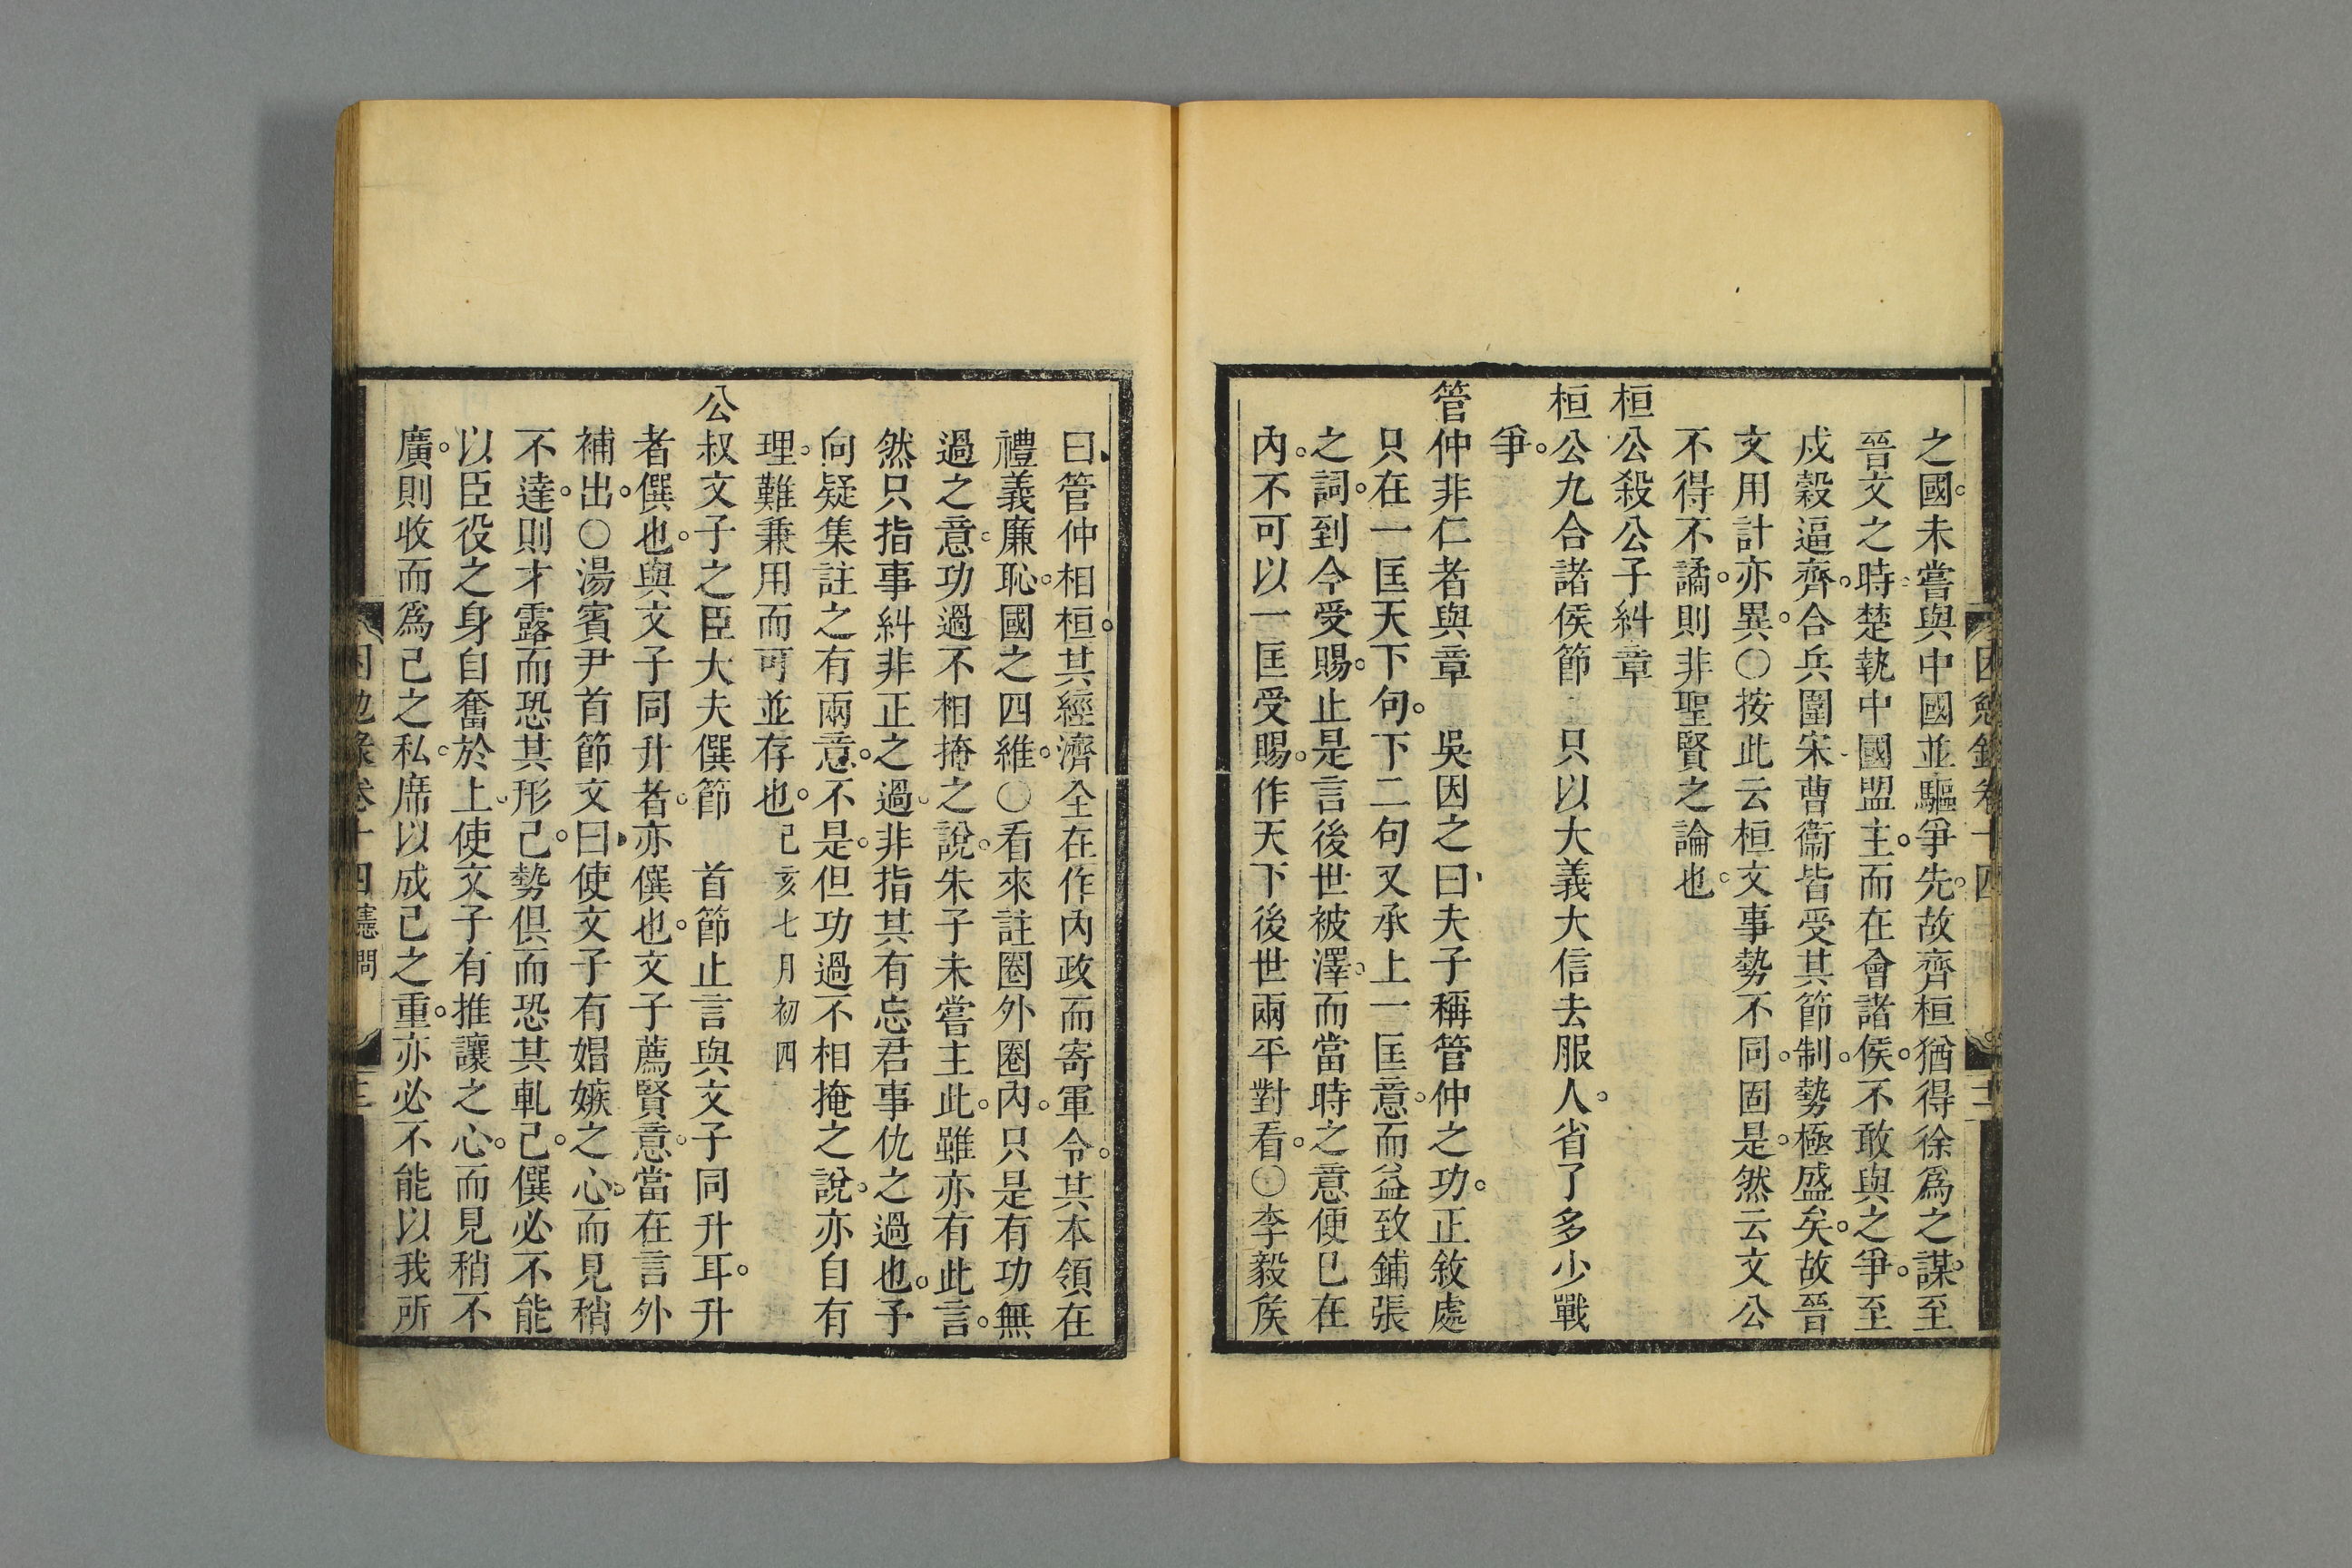 之國。未嘗與中國並驅爭先。故齊桓猶得徐爲之謀。至
晉文之時。楚執中國盟主。而在會諸侯。不敢與之爭。至
戍穀逼齊。合兵圍宋。曹衞皆受其節制。勢極盛矣。故晉
文用計亦異。○按此云桓文事勢不同。固是。然云文公
不得不譎。則非聖賢之論也。
桓公殺公子糾章
桓公九合諸侯節　只以大義大信去服人。省了多少戰
爭。
管仲非仁者與章　吳因之曰、夫子稱管仲之功。正敘處
只在一匡天下句。下二句又承上一匡意。而益致鋪張
之詞。到今受賜。止是言後世被澤。而當時之意便已在
內。不可以一匡受賜。作天下後世兩平對看。○李毅矦
曰、管仲相桓。其經濟全在作內政而寄軍令。其本領在
禮義廉恥。國之四維。○看來註圈外圈內。只是有功無
過之意。功過不相掩之說。朱子未嘗主此。雖亦有此言。
然只指事糾非正之過。非指其有忘君事仇之過也。予
向疑集註之有兩意。不是。但功過不相掩之說。亦自有
理。難兼用而可並存也。己亥七月初四
公叔文子之臣大夫僎節　首節止言與文子同升耳。升
者僎也。與文子同升者。亦僎也。文子薦賢意。當在言外
補出。○湯賓尹首節文曰、使文子有媢嫉之心。而見稍
不達。則才露而恐其形己。勢俱而恐其軋己。僎必不能
以臣役之身自奮於上。使文子有推讓之心。而見稍不
廣。則收而爲己之私。席以成己之重。亦必不能以我所
困勉錄卷十四 憲問